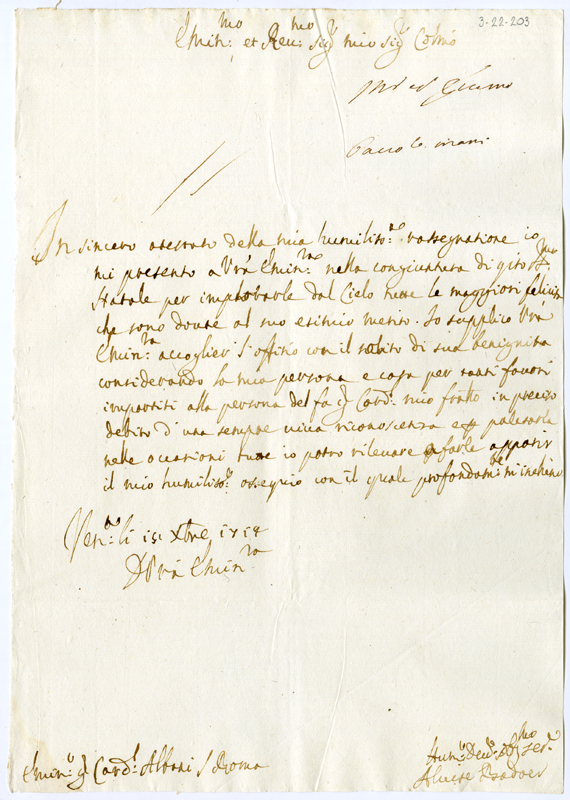 3-22-203
Emin:mo et Reu:mo Sig.r mio Sig.r Col:mo
In sincero attestato della mia humiliss:ma rassegnatione io
mi presento a Vr̃a Emin:za nella congiuntura di q̃sto S:mo
Natale per impetrarle dal Cielo tutte le maggiori felicità
che sono douute al suo esimio merito. Io supplico Vr̃a
Emin:za accoglier l'offitio con il solito di sua benignità
considerando la mia persona e casa per tanti fauori
impartiti alla persona del fù Card: mio frãtto in preciso
debito d'una sempre uiua riconoscenza e palesarla
nelle occasioni tutte io potrò rileuare farle apparir
il mio humiliss:o ossequio con il quale profondam:te m'inchino
Ven:a li 15 Xbre 1714
D Vr̃a Emin:za
Emin:o Card:l Albani / Roma
Hum:o Deu:o Obl:mo Ser:e
Aluise Badoer